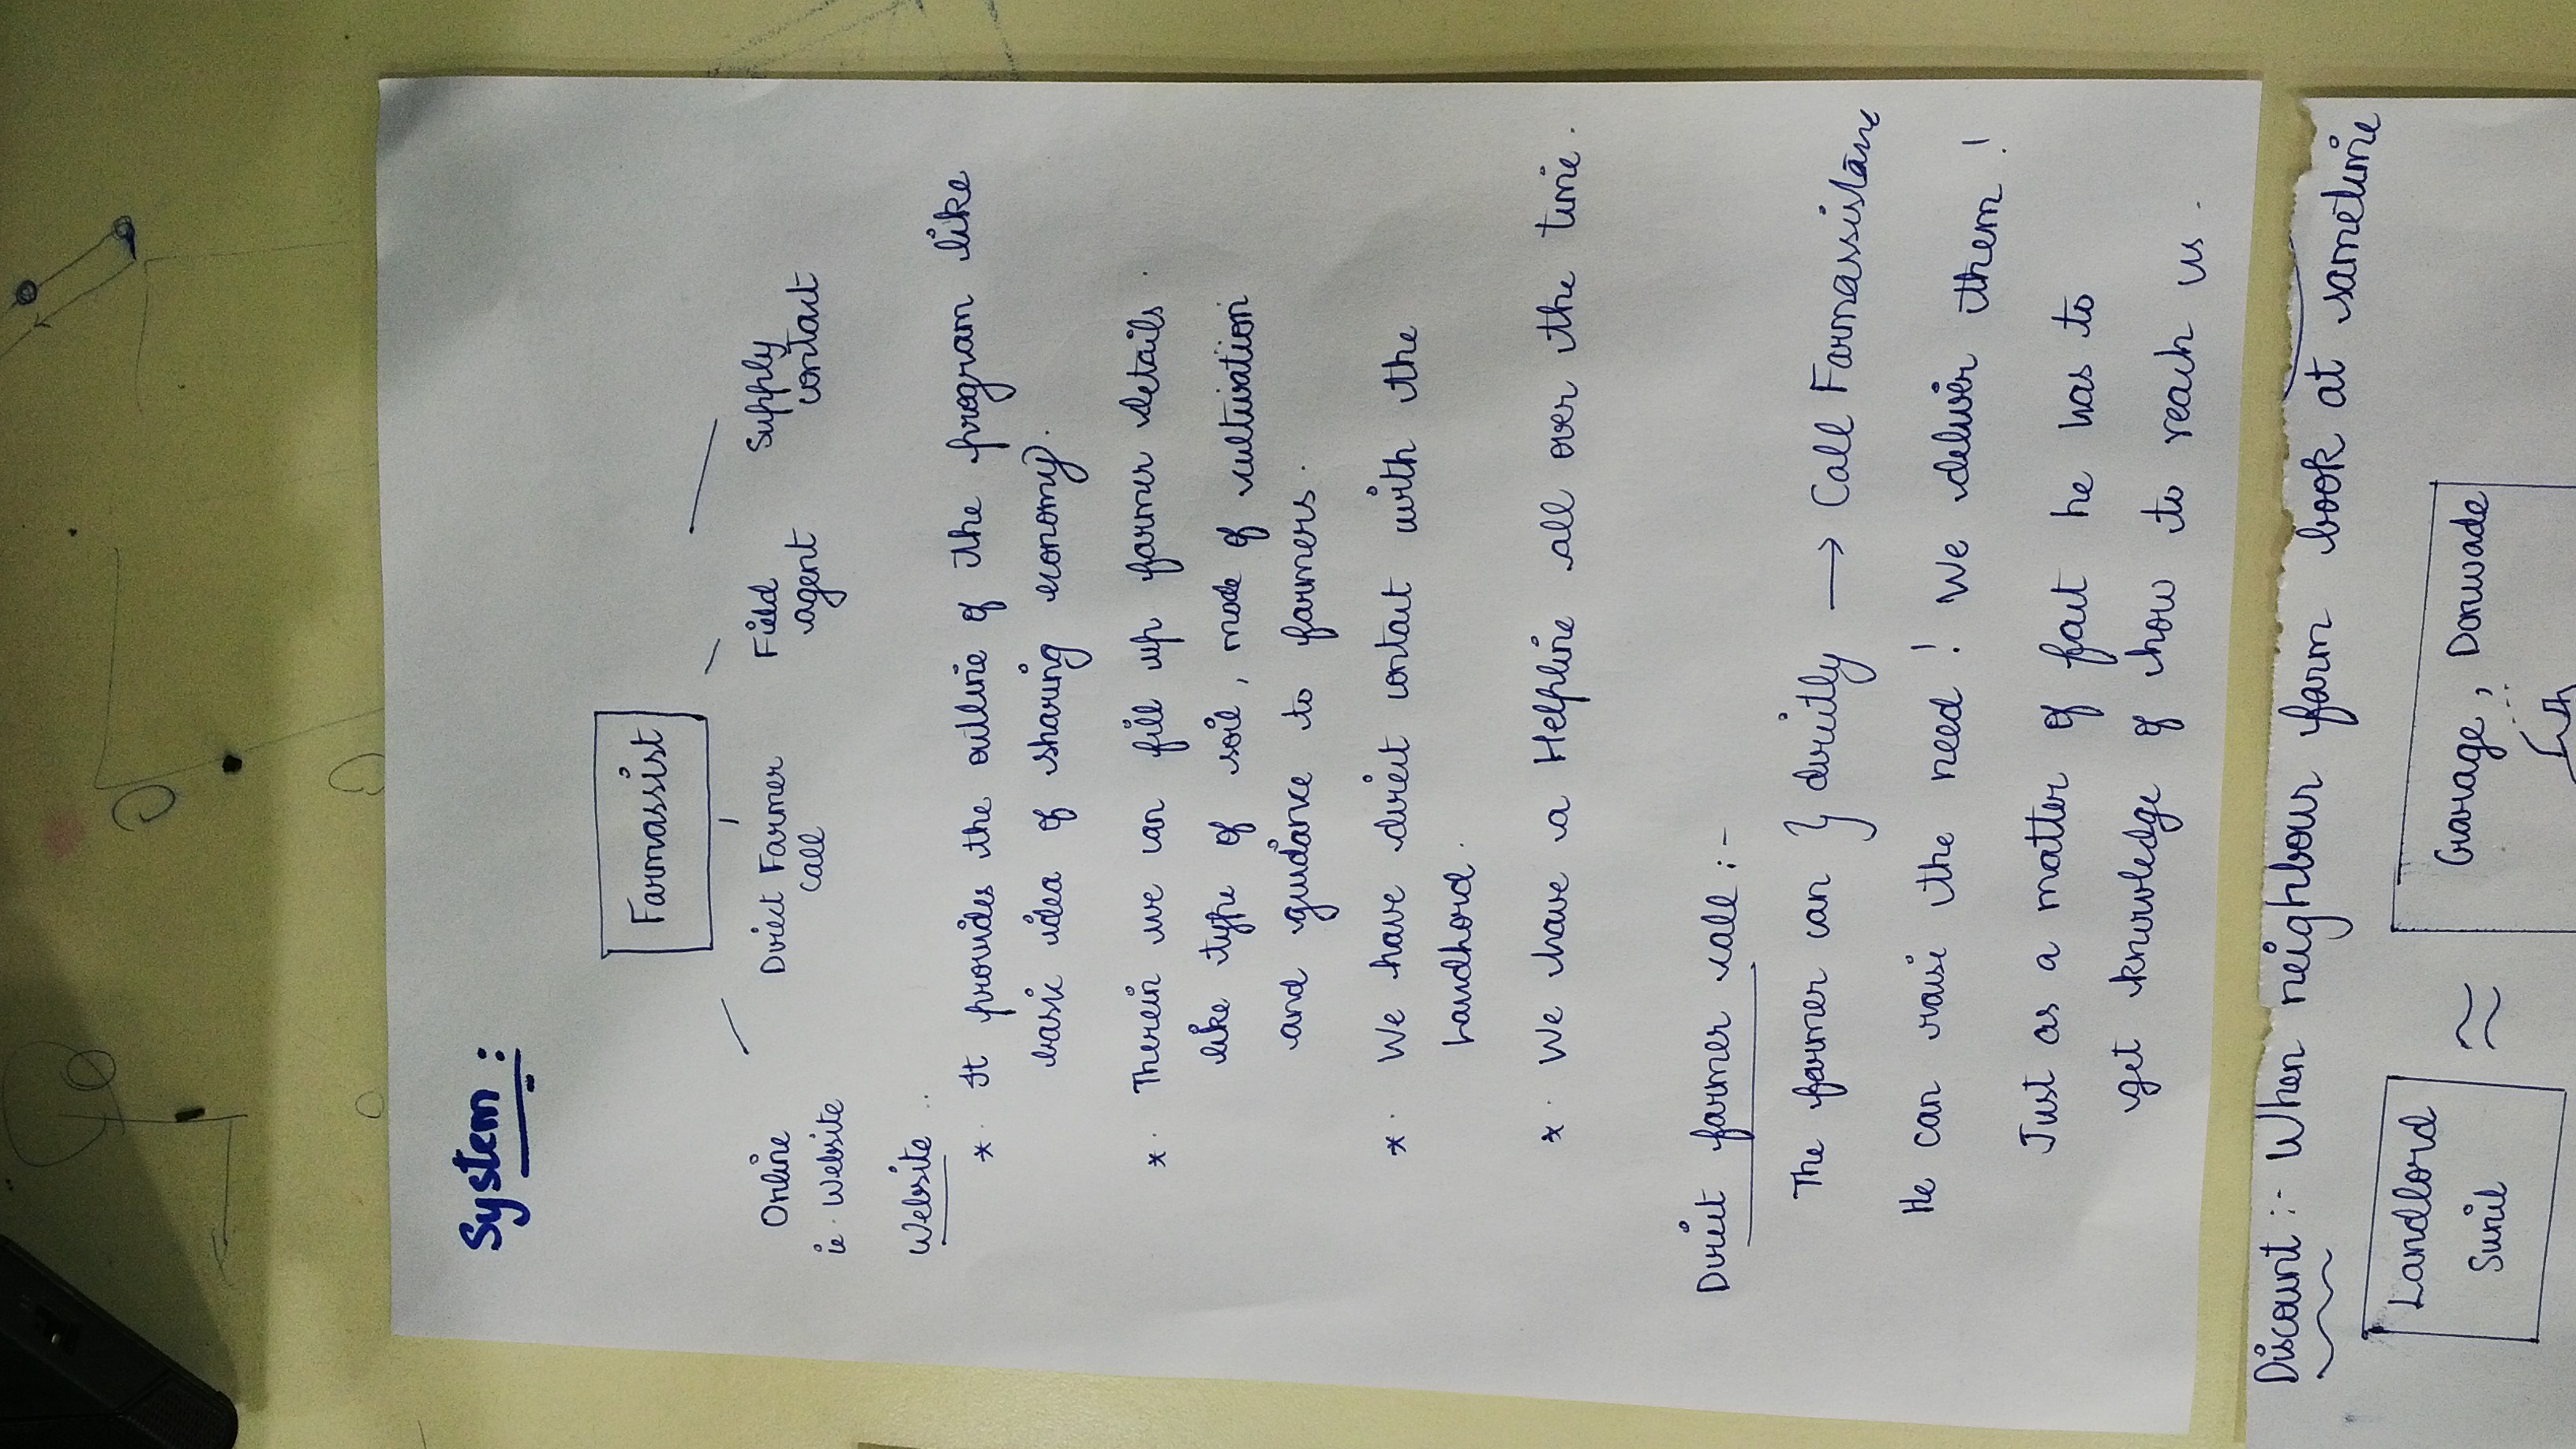 System :
Farmassist
Online
ie. Website
Direct Farmer
call
Field
agent
Supply
contact
Website
* It provides the outline of the program like
basic idea of sharing economy.
* Therein we can fill up farmer details
like type of soil, mode of cultivation
and guidance to farmers.
* We have direct contact with the
Landlord.
* We have a Helpline all over the time.
Direct farmer call :-
The farmer can } directly → Call Farmassistance
He can raise the need ! We deliver them !
Just as a matter of fact he has to
get knowledge of how to reach us.
Discount :- When neighbour farm book at sametime
Landlord
Sunil
≈
Garage, Donwade